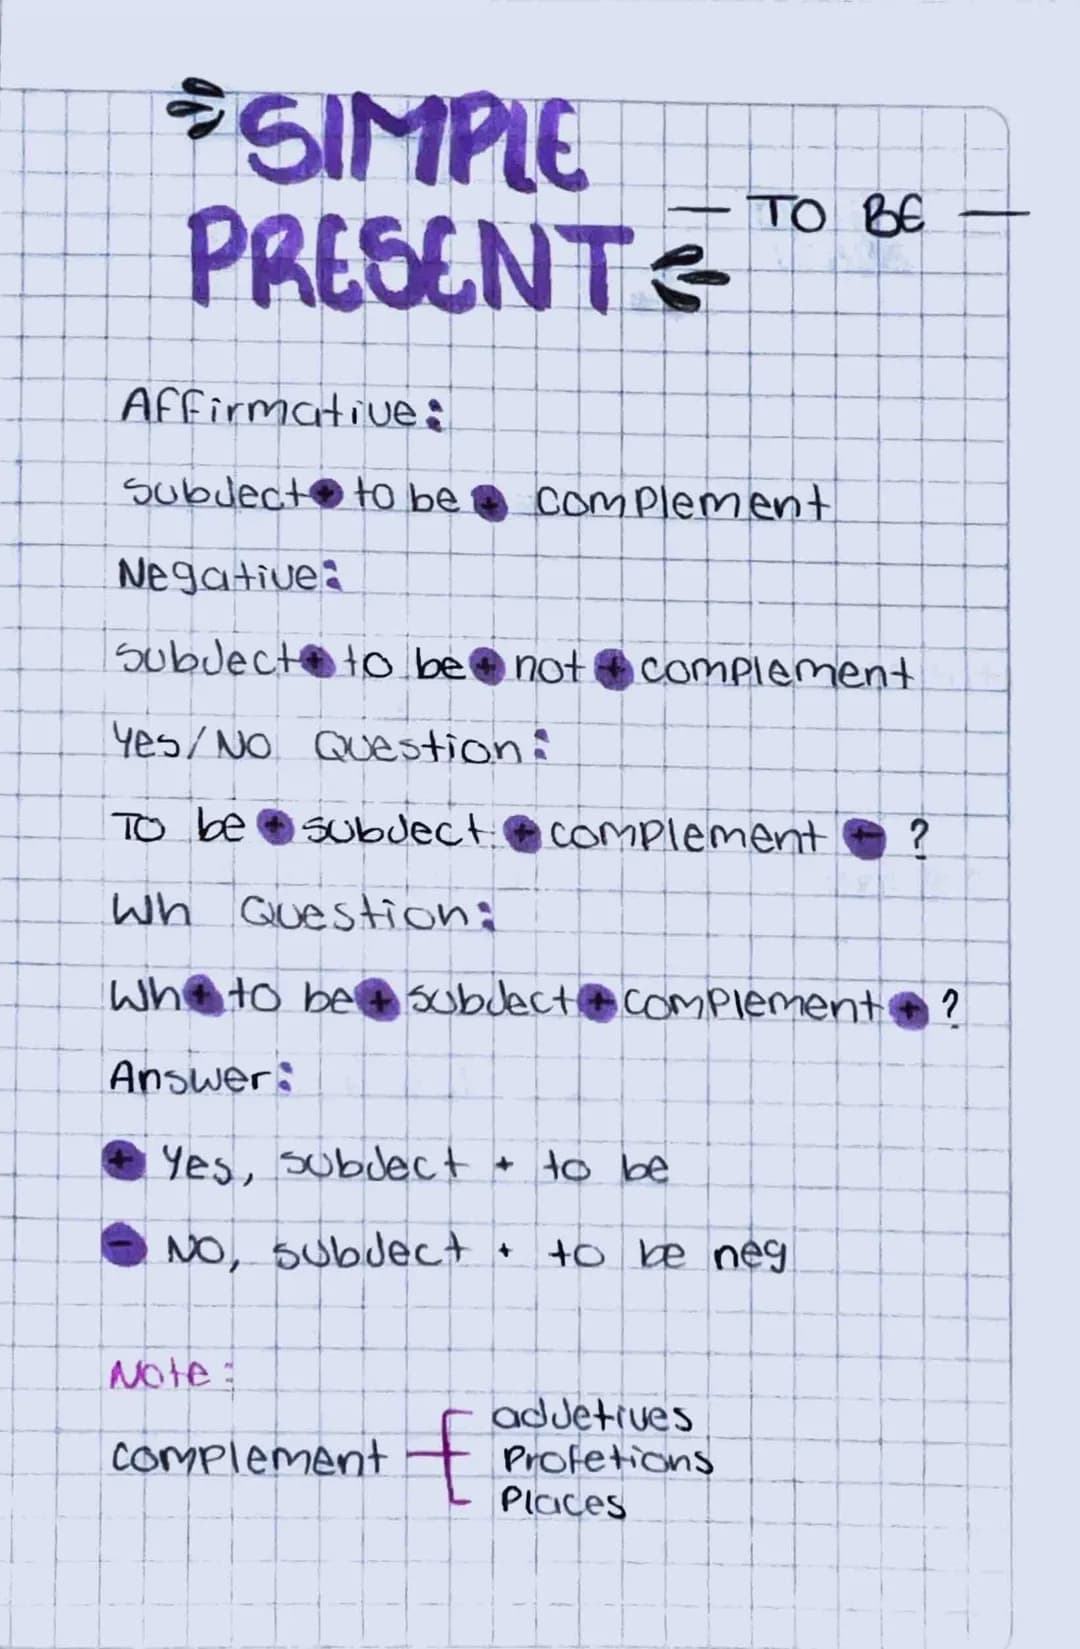 SIMPLE
PRESENT
— TO BE —
Affirmative:
subject + to be + complement
Negative:
subject + to be + not + complement
Yes/No Question:
To be + subject + complement + ?
Wh Question:
Wh + to be + subject + complement + ?
Answer:
+ Yes, subject + to be
- No, subject + to be neg
Note:
complement
adjetives
Profetions
Places